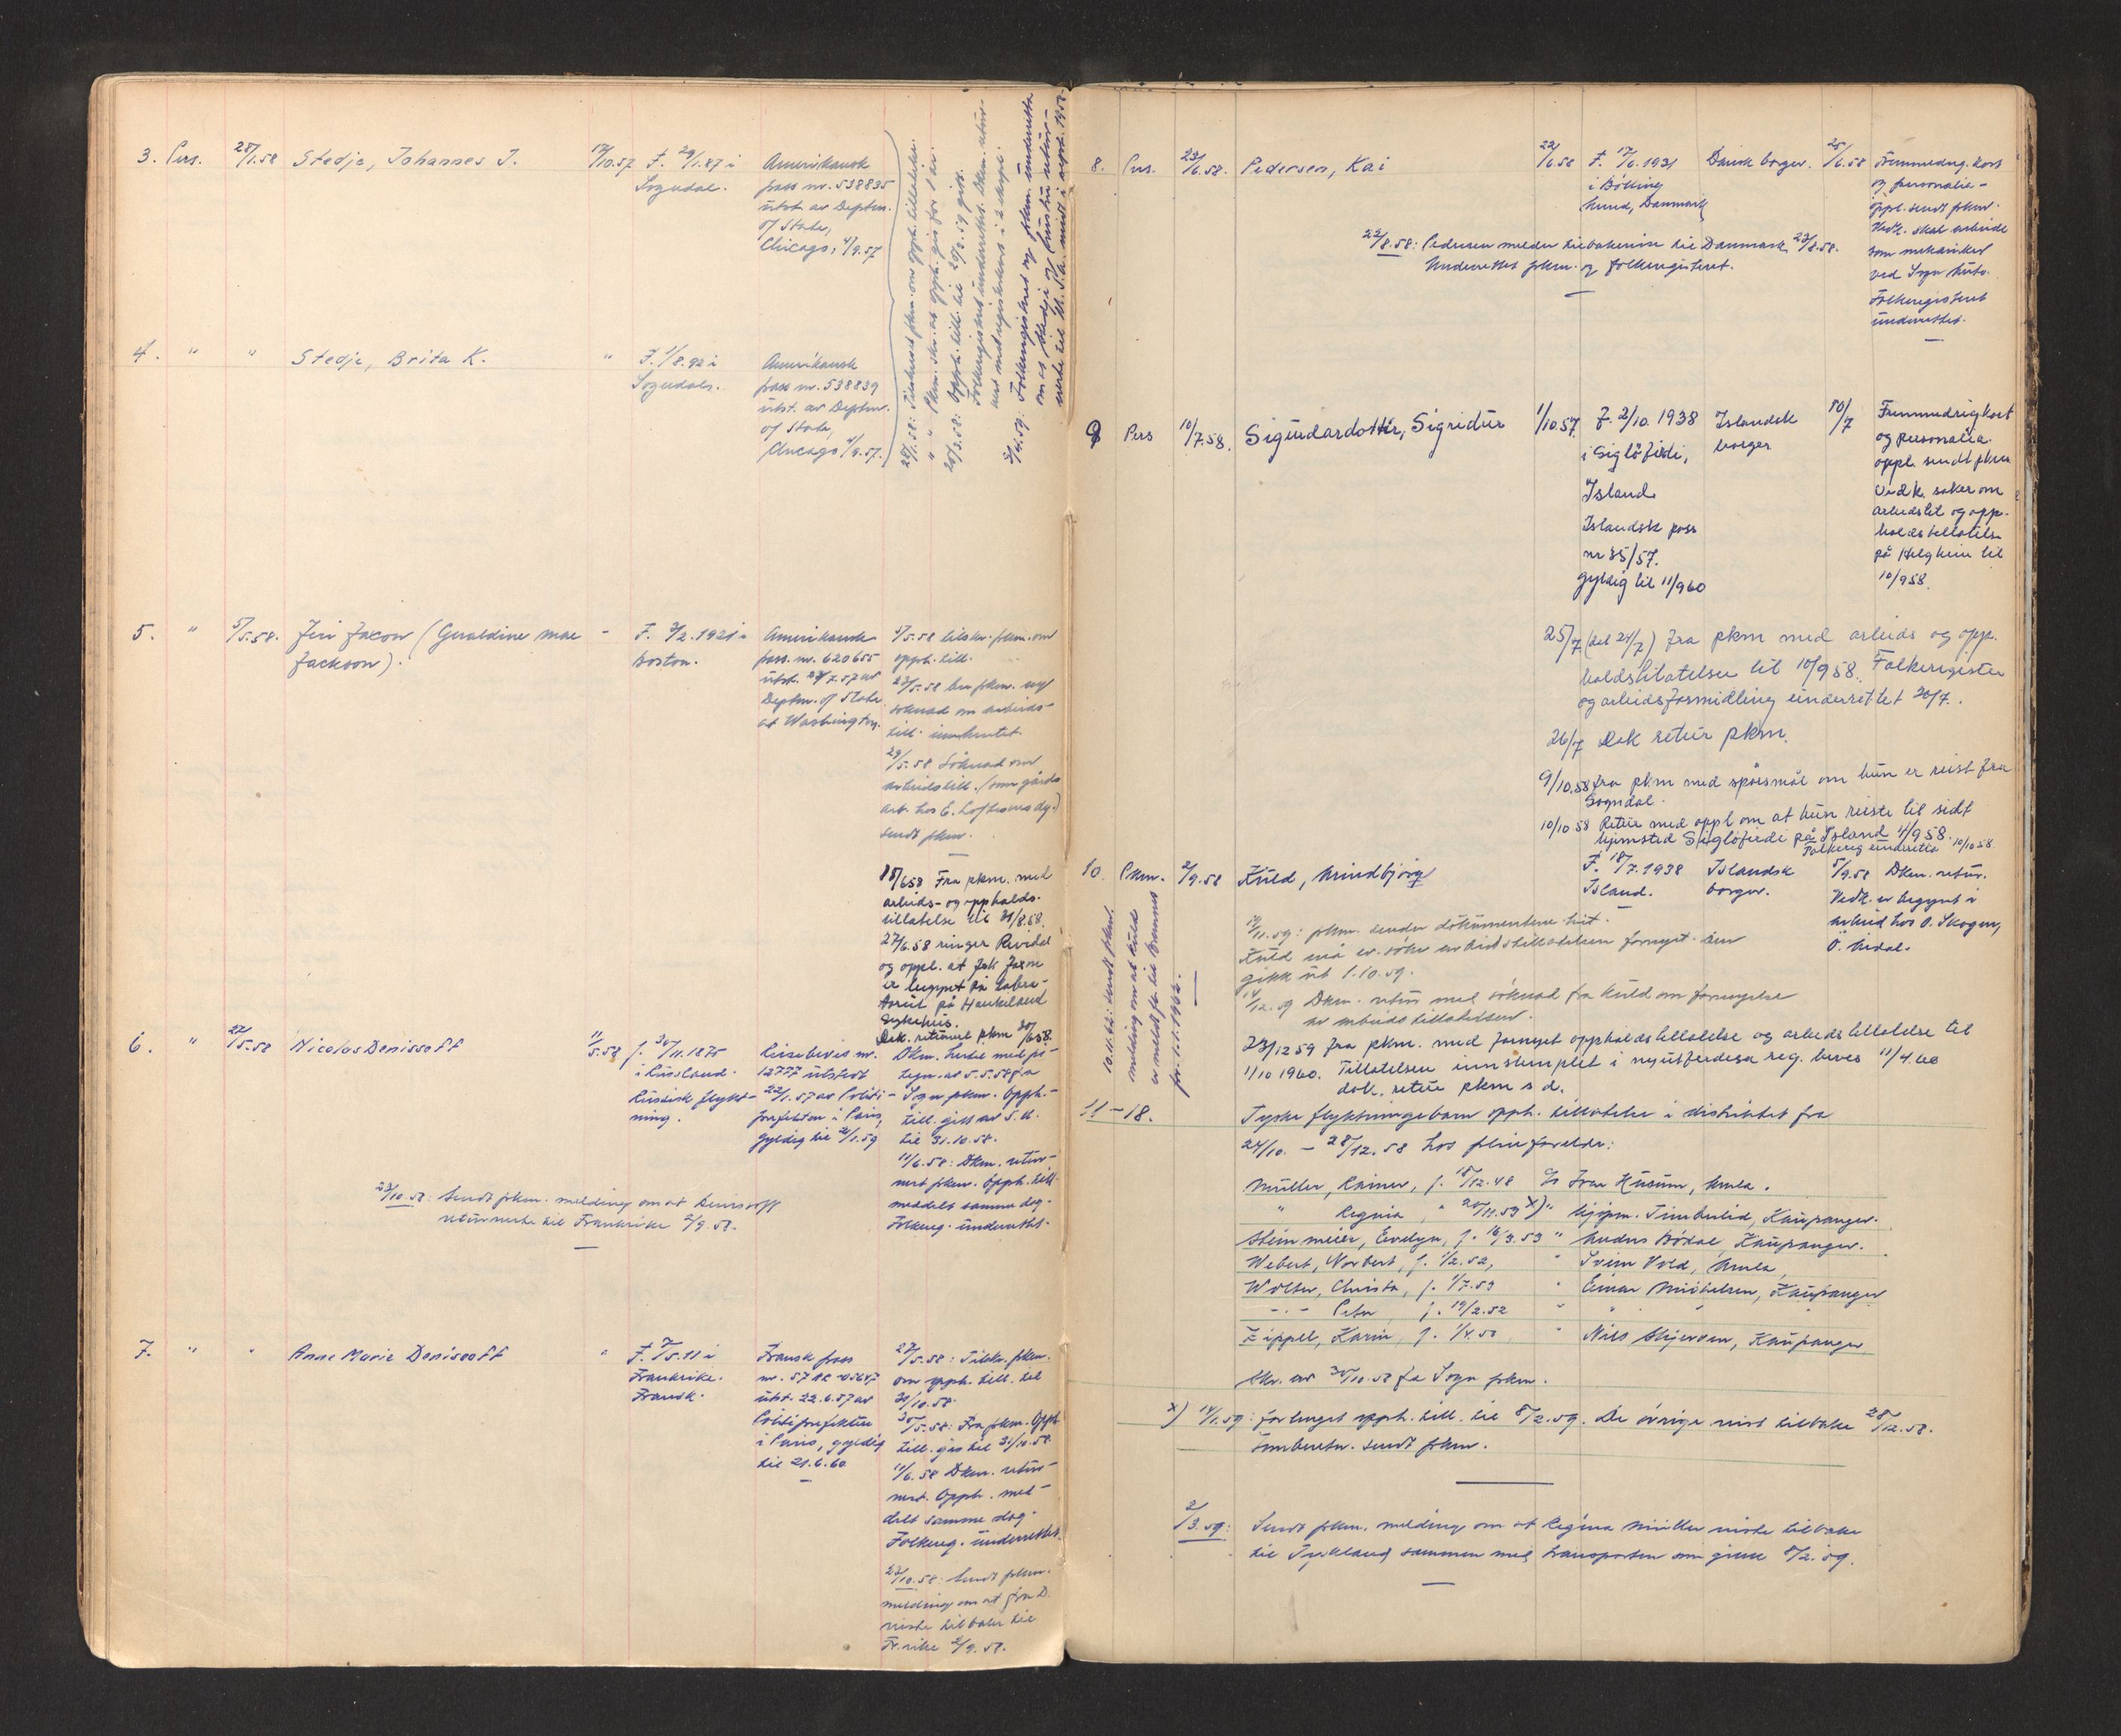 3. Pers. 28/1.58 Stedje, Johannes J.
F. 29/1.87 i
Sogndal.
Amerikansk
pass nr. 538835
utst. av Deptm.
of State,
Chicago, 4/9.57
4. " " Stedje, Brita K. "
F. 1/8.92 i
Sogndal.
Amerikansk
pass nr. 538839
utst. av Deptm.
of State,
Chicago 4/9.57.
28/1.58: Tilskrevet pkm. om opph. tillatelse.
" " Pkm. skr. at opph. gis for 1 år.
Folkeregisteret og pkm. underretta
om at Stedje og frustru retur-
nerte til U.S.A. midt i sept. 1958.
5. " 5/5.58. Jeri Jaxon (Geraldine Mae -
Jackson).
F. 3/2. 1921 i
Boston.
Amerikansk
pass. nr. 620655
utst. 29/7.57 av
Deptm. of State
at Washington.
5/5.58 tilskr. pkm. om
opph. till.
23/5.58 ny
søknad om arbeids-
till. innhentet.
29/5.58 Søknad om
arbeidstill. (som gårds
arb. hos E. Loftesnes dg.)
sendt pkm.
18/658 Fra pkm. med
arbeids- og oppholds-
tillatelse til 31/8.58.
27/6.58 ringer Revidal
og oppl. at frk Jaxon
er
på Haukeland
Sykehus.
Dok. returnert pkm 30/658.
6. " 27/5.58 Nicolas Denissoff
11/5.58 f. 30/11.1875
i Russland.
Russisk flykt-
ning.
Reisebevis nr.
12777 utstedt
22/1.57 av Politi-
prefekten i Paris,
gyldig til 21/1.59
Dkm. hertil med på-
tegn. av 5.5.58 fra
Sogn pkm. Opph.-
till. gitt av S.U.
til 31.10.58.
11/6.58: Dkm. retur-
nert pkm. Opph. till.
meddelt samme dag.
Folkereg. underrettet.
23/10.58: Sendt pkm. melding om at Denissoff
returnerte til Frankrike 2/9.58.
7. " " Anne Marie Denissoff "
F. 7/5.11 i
Frankrike.
Fransk.
Fransk pass
utst. 22.6.57 av
Politiprefektur
i Paris, gyldig
til 21.6.60
27/5.58: Tilskr. pkm.
om opph. till. til
31/10.58.
30/5.58: Fra pkm. Opph
till. gis til 31/10.58
11/6.58 Dkm. retur-
nert. Opph. med-
delt samme dag.
Folkereg. underrettet.
23/10.58: Sendt pkm.
melding om at fru D.
reiste tilbake til
Fr.rike 2/9.58.
8. Pers. 23/6.58. Pedersen, Kai
22/6.58 F. 17/6.1931
i Bölling
lund, Danmark
Dansk borger.
25/6.58 Fremmedreg. kort
og personalia-
oppl. sendt pkm.
Vedk. skal arbeide
som mekaniker
ved Sogn Auto.
Folkeregisteret
underrettet.
22/8.58: Pedersen melder tilbakereise til Danmark 23/8.58.
Underrettet pkm. og folkeregisteret.
9 Pers 10/7.58. Sigurdardottir, Sigridur
1/10.57. F. 2/10. 1938
i Siglöfirdi,
Island.
Islandsk pass
nr 85/57.
gyldig til 11/960
Islandsk
borger
10/7 Fremmedrigkort
og personalia.
oppl. sendt pkm
Vedk. søker om
arbeidstil og opp-
holdstillatelse
på Helgheim til
10/958.
25/7 (del 24/7) fra pkm med arbeids og opp-
holdstilatelse til 10/958. Folkeregister
og arbeidsformidling underrettet 30/7.
26/7 Dok retur pkm.
9/10.58 fra pkm med spørsmål om hun er reist fra
Sogndal.
10/10 58 Retur med oppl om at hun reiste til sidt
hjemsted Siglöfirdi på Island 11/958.
Folkereg underretta 10/10 58
10. Pkm. 2/9.58 Kuld, Arindbjörg
F. 18/7.1938
Island.
Islandsk
borger.
5/9.58 Dkm. retur.
Vedk. er begynt i
arbeid hos O. Skogen,
Ö. Årdal.
10.11.62: Sendt pkm.
melding om at Kuld
er meldt fl. til Bramnes
fr. 1.1.1962.
12/11.59: pkm. sender dokumentene hit.
Kuld må ev. söke arbeidstillatelsen fornyet. Den
gikk ut 1.10.59.
14/12.59 Dkm. retur med söknad fra Kuld om fornyelse
av arbeidstillatelsen.
23/12 59 fra pkm. med fornyet oppholdstillatelse og arbeidstillatelse til
1/10 1960. Tillatelsen innstemplet i nyutferdega reg. beves 11/4.60
dok. retur pkm s d.
11-18. Tyske flyktningebarn opph. tillatelse i distriktet fra
24/10. - 28/12.58 hos pleieforeldre:
Müller, Rainer, f. 18/12.48 c/o Ivar Husum, Amla.
" Regina, " 20/11.53 x) " kjøpm. Timberlid, Kaupanger.
Steinmeier, Evelyn, f. 16/3.53 " Anders Bödal, Kaupanger.
Webert, Norbert, f. 1/2.52, " Svein Vold, Amla,
Wolter, Christa, f. 1/7.53 " Einar Mickelsen, Kaupanger
-"- Peter f. 19/2.52 " " "
Zippel, Karin, f. 1/4.50 " Nils Skjerven, Kaupanger
Skr. av 30/10.58 fra Sogn pkm.
x) 14/1.59: forlenget opph. till. til 8/2.59. De övrige reist tilbake 28/12.58.
sendt pkm.
2/3.59: Sendt pkm. melding om at Regina Müller reiste tilbake
til Tyskland sammen med transporten som gikk 8/2.59.